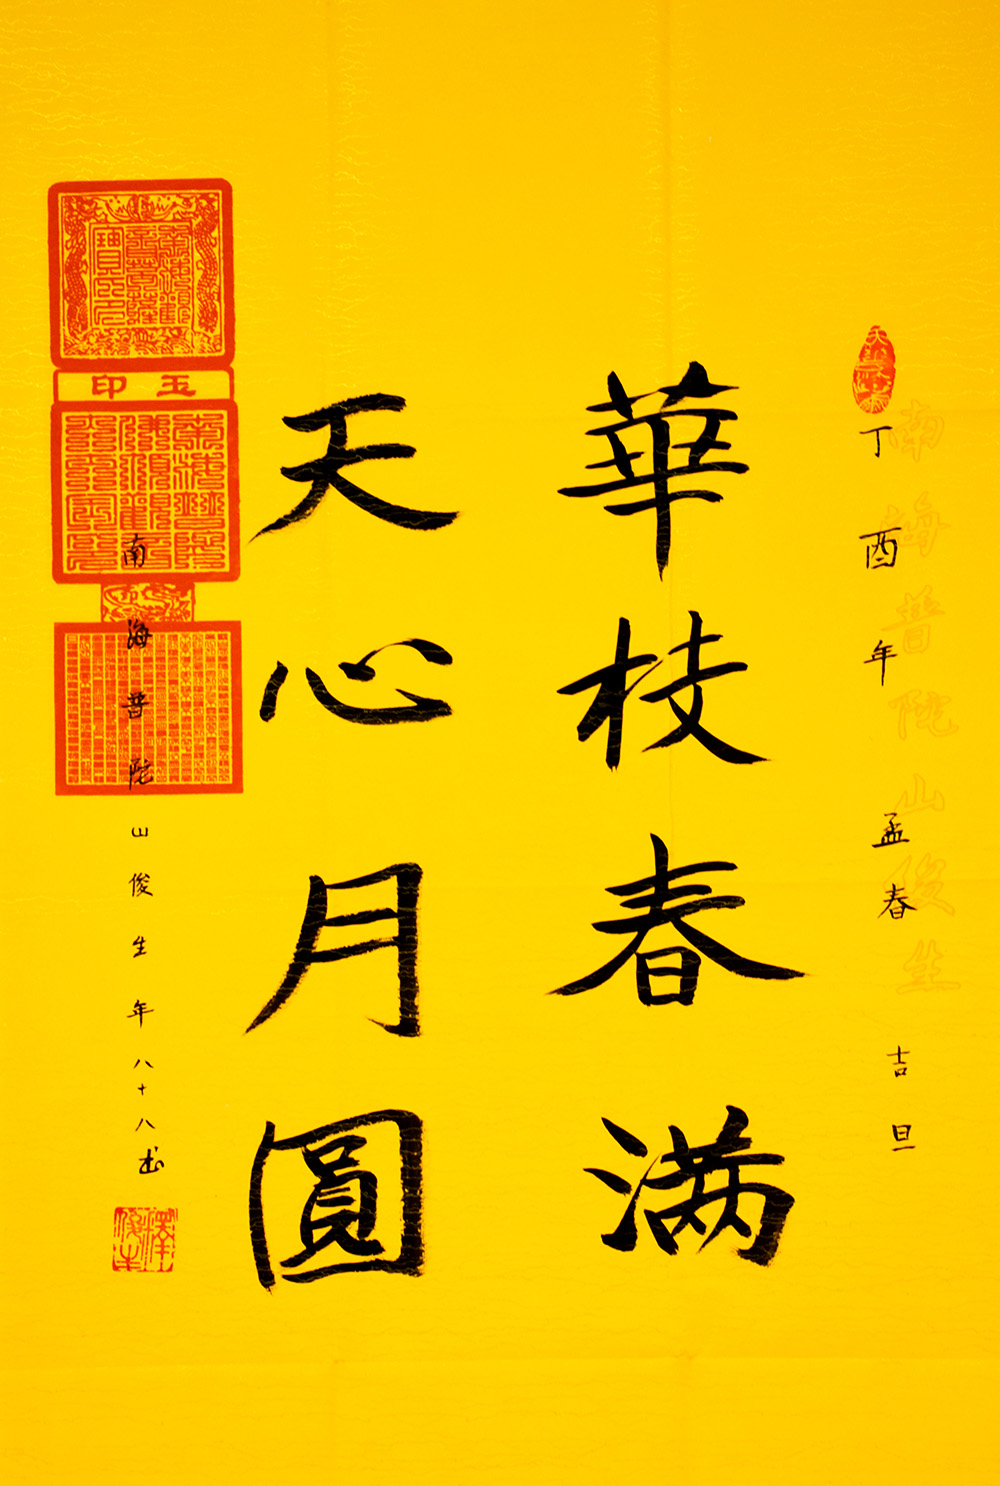 丁酉年孟春吉旦
南海普陀山俊生
華枝春满
天心月圓
玉印
南海普陀山俊生年八十八书
釋俊生